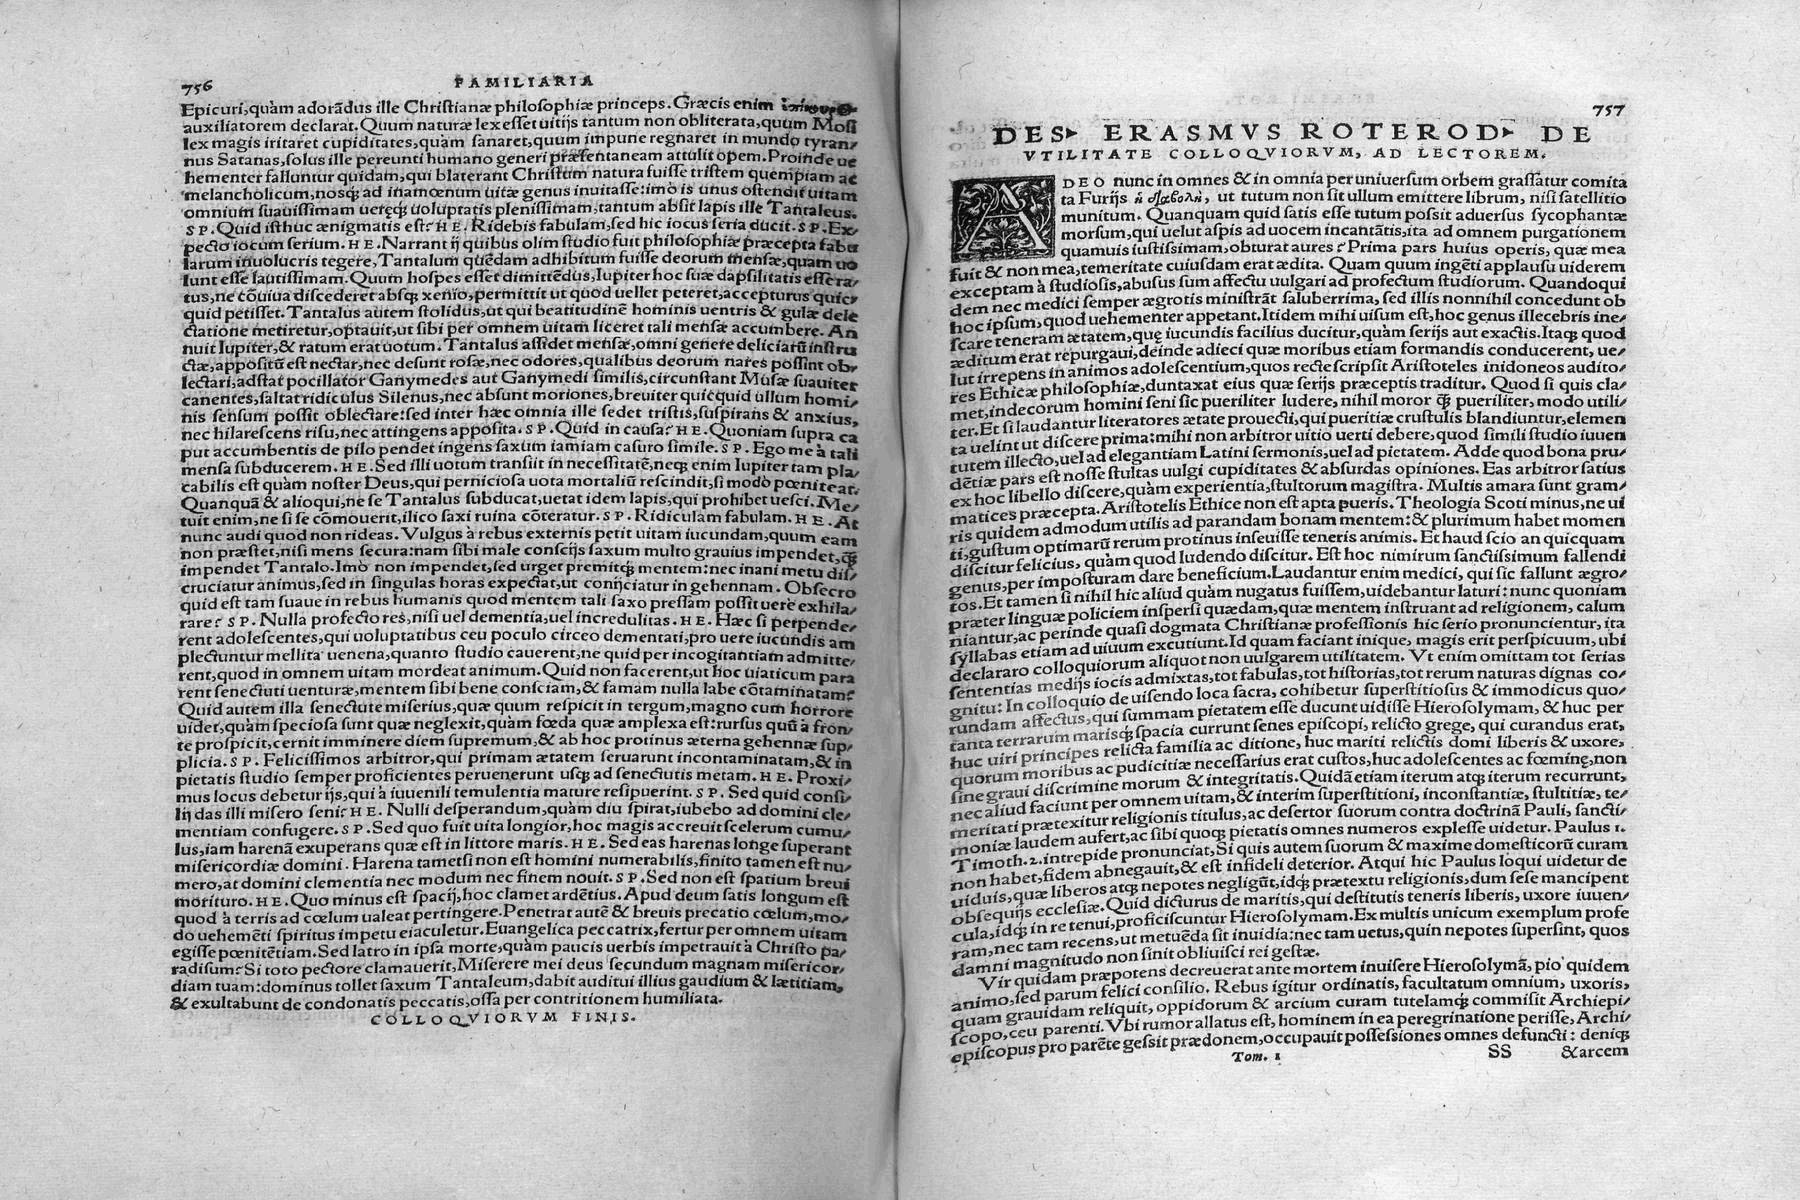 756
FAMILIARIA
Epicuri,quàm adorādus ille Christianæ philosophiæ princeps. Græcis enim ἐπίκουρος
auxiliatorem declarat. Quum naturæ lex esset uitijs tantum non obliterata, quum Mosi
lex magis iritaret cupiditates, quàm sanaret, quum impune regnaret in mundo tyran/
nus Satanas, solus ille pereunti humano generi præsentaneam attulit opem. Proinde ue
hementer falluntur quidam, qui blaterant Christum natura fuisse tristem quempiam ac
melancholicum, nosq; ad inamœnum uitæ genus inuitasse: imò is unus ostendit uitam
omnium suauissimam ueręq; uoluptatis plenissimam, tantum absit lapis ille Tantaleus.
SP. Quid isthuc ænigmatis est? HE. Ridebis fabulam, sed hic iocus seria ducit. SP. Ex/
pecto iocum serium. HE. Narrant ij quibus olim studio fuit philosophiæ præcepta fabu
larum inuolucris tegere, Tantalum quēdam adhibitum fuisse deorum mensæ, quam uo
lunt esse lautissimam. Quum hospes esset dimittēdus, Iupiter hoc suæ dapsilitatis esse ra/
tus, ne cōuiua discederet absq; xenio, permittit ut quod uellet peteret, accepturus quic/
quid petisset. Tantalus autem stolidus, ut qui beatitudinē hominis uentris & gulæ dele
ctatione metiretur, optauit, ut sibi per omnem uitam liceret tali mensæ accumbere. An
nuit Iupiter, & ratum erat uotum. Tantalus assidet mensæ, omni genere deliciarū instru
ctæ, appositū est nectar, nec desunt rosæ, nec odores, qualibus deorum nares possint ob/
lectari, adstat pocillator Ganymedes aut Ganymedi similis, circunstant Musæ suauiter
canentes, saltat ridiculus Silenus, nec absunt moriones, breuiter quicquid ullum homi/
nis sensum possit oblectare: sed inter hæc omnia ille sedet tristis, suspirans & anxius,
nec hilarescens risu, nec attingens apposita. SP. Quid in causa? HE. Quoniam supra ca
put accumbentis de pilo pendet ingens saxum iamiam casuro simile. SP. Ego me à tali
mensa subducerem. HE. Sed illi uotum transiit in necessitatē, neq; enim Iupiter tam pla/
cabilis est quàm noster Deus, qui perniciosa uota mortaliū rescindit, si modò pœniteat.
Quanquā & alioqui, ne se Tantalus subducat, uetat idem lapis, qui prohibet uesci. Me/
tuit enim, ne si se cōmouerit, ilico saxi ruina cōteratur. SP. Ridiculam fabulam. HE. At
nunc audi quod non rideas. Vulgus à rebus externis petit uitam iucundam, quum eam
non præstet, nisi mens secura: nam sibi male conscijs saxum multo grauius impendet, q̃
impendet Tantalo. Imò non impendet, sed urget premitq; mentem: nec inani metu dis/
cruciatur animus, sed in singulas horas expectat, ut conijciatur in gehennam. Obsecro
quid est tam suaue in rebus humanis quod mentem tali saxo pressam possit uere exhila/
rare? SP. Nulla profecto res, nisi uel dementia, uel incredulitas. HE. Hæc si perpende/
rent adolescentes, qui uoluptatibus ceu poculo circeo dementati, pro uere iucundis am
plectuntur mellita uenena, quanto studio cauerent, ne quid per incogitantiam admitte/
rent, quod in omnem uitam mordeat animum. Quid non facerent, ut hoc uiaticum para
rent senectuti uenturæ, mentem sibi bene consciam, & famam nulla labe cōtaminatam?
Quid autem illa senectute miserius, quæ quum respicit in tergum, magno cum horrore
uidet, quàm speciosa sunt quæ neglexit, quàm fœda quæ amplexa est: rursus quū à fron/
te prospicit, cernit imminere diem supremum, & ab hoc protinus æterna gehennæ sup/
plicia. SP. Felicissimos arbitror, qui primam ætatem seruarunt incontaminatam, & in
pietatis studio semper proficientes peruenerunt usq; ad senectutis metam. HE. Proxi/
mus locus debetur ijs, qui à iuuenili temulentia mature resipuerint. SP. Sed quid consi/
lij das illi misero seni? HE. Nulli desperandum, quàm diu spirat, iubebo ad domini cle/
mentiam confugere. SP. Sed quo fuit uita longior, hoc magis accreuit scelerum cumu/
lus, iam harenā exuperans quæ est in littore maris. HE. Sed eas harenas longe superant
misericordiæ domini. Harena tametsi non est homini numerabilis, finito tamen est nu/
mero, at domini clementia nec modum nec finem nouit. SP. Sed non est spatium breui
morituro. HE. Quo minus est spacij, hoc clamet ardētius. Apud deum satis longum est
quod à terris ad cœlum ualeat pertingere. Penetrat autē & breuis precatio cœlum, mo/
do uehemēti spiritus impetu eiaculetur. Euangelica peccatrix, fertur per omnem uitam
egisse pœnitētiam. Sed latro in ipsa morte, quàm paucis uerbis impetrauit à Christo pa/
radisum? Si toto pectore clamauerit, Miserere mei deus secundum magnam misericor/
diam tuam: dominus tollet saxum Tantaleum, dabit auditui illius gaudium & lætitiam,
& exultabunt de condonatis peccatis, ossa per contritionem humiliata.
COLLOQVIORVM FINIS.
757
DES. ERASMVS ROTEROD. DE
VTILITATE COLLOQVIORVM, AD LECTOREM.
ADEO nunc in omnes & in omnia per uniuersum orbem grassatur comita
ta Furijs ἡ διαβολή, ut tutum non sit ullum emittere librum, nisi satellitio
munitum. Quanquam quid satis esse tutum possit aduersus sycophantæ
morsum, qui uelut aspis ad uocem incantātis, ita ad omnem purgationem
quamuis iustissimam, obturat aures? Prima pars huius operis, quæ mea
fuit & non mea, temeritate cuiusdam erat ædita. Quam quum ingēti applausu uiderem
exceptam à studiosis, abusus sum affectu uulgari ad profectum studiorum. Quandoqui
dem nec medici semper ægrotis ministrāt saluberrima, sed illis nonnihil concedunt ob
hoc ipsum, quod uehementer appetant. Itidem mihi uisum est, hoc genus illecebris ine/
scare teneram ætatem, quę iucundis facilius ducitur, quàm serijs aut exactis. Itaq; quod
æditum erat repurgaui, deinde adieci quæ moribus etiam formandis conducerent, ue/
lut irrepens in animos adolescentium, quos recte scripsit Aristoteles inidoneos audito/
res Ethicæ philosophiæ, duntaxat eius quæ serijs præceptis traditur. Quod si quis cla/
met, indecorum homini seni sic pueriliter ludere, nihil moror q̃ pueriliter, modo utili/
ter. Et si laudantur literatores ætate prouecti, qui pueritiæ crustulis blandiuntur, elemen
ta uelint ut discere prima: mihi non arbitror uitio uerti debere, quod simili studio iuuen
tutem illecto, uel ad elegantiam Latini sermonis, uel ad pietatem. Adde quod bona pru/
dētiæ pars est nosse stultas uulgi cupiditates & absurdas opiniones. Eas arbitror satius
ex hoc libello discere, quàm experientia, stultorum magistra. Multis amara sunt gram/
matices præcepta. Aristotelis Ethice non est apta pueris. Theologia Scoti minus, ne ui
ris quidem admodum utilis ad parandam bonam mentem: & plurimum habet momen
ti, gustum optimarū rerum protinus inseuisse teneris animis. Et haud scio an quicquam
discitur felicius, quàm quod ludendo discitur. Est hoc nimirum sanctissimum fallendi
genus, per imposturam dare beneficium. Laudantur enim medici, qui sic fallunt ægro/
tos. Et tamen si nihil hic aliud quàm nugatus fuissem, uidebantur laturi: nunc quoniam
præter linguæ policiem inspersi quædam, quæ mentem instruant ad religionem, calum
niantur, ac perinde quasi dogmata Christianæ professionis hic serio pronuncientur, ita
syllabas etiam ad uiuum excutiunt. Id quam faciant inique, magis erit perspicuum, ubi
declararo colloquiorum aliquot non uulgarem utilitatem. Vt enim omittam tot serias
sententias medijs iocis admixtas, tot fabulas, tot historias, tot rerum naturas dignas co/
gnitu: In colloquio de uisendo loca sacra, cohibetur superstitiosus & immodicus quo/
rundam affectus, qui summam pietatem esse ducunt uidisse Hierosolymam, & huc per
tanta terrarum marisq; spacia currunt senes episcopi, relicto grege, qui curandus erat,
huc uiri principes relicta familia ac ditione, huc mariti relictis domi liberis & uxore,
quorum moribus ac pudicitiæ necessarius erat custos, huc adolescentes ac fœminę, non
sine graui discrimine morum & integritatis. Quidā etiam iterum atq; iterum recurrunt,
nec aliud faciunt per omnem uitam, & interim superstitioni, inconstantiæ, stultitiæ, te/
meritati prætexitur religionis titulus, ac desertor suorum contra doctrinā Pauli, sancti/
moniæ laudem aufert, ac sibi quoq; pietatis omnes numeros explesse uidetur. Paulus 1.
Timoth. 2. intrepide pronunciat, Si quis autem suorum & maxime domesticorū curam
non habet, fidem abnegauit, & est infideli deterior. Atqui hic Paulus loqui uidetur de
uiduis, quæ liberos atq; nepotes negligūt, idq; prætextu religionis, dum sese mancipent
obsequijs ecclesiæ. Quid dicturus de maritis, qui destitutis teneris liberis, uxore iuuen/
cula, idq; in re tenui, proficiscuntur Hierosolymam. Ex multis unicum exemplum profe
ram, nec tam recens, ut metuēda sit inuidia: nec tam uetus, quin nepotes supersint, quos
damni magnitudo non sinit obliuisci rei gestæ.
Vir quidam præpotens decreuerat ante mortem inuisere Hierosolymā, pio quidem
animo, sed parum felici consilio. Rebus igitur ordinatis, facultatum omnium, uxoris,
quam grauidam reliquit, oppidorum & arcium curam tutelamq; commisit Archiepi/
scopo, ceu parenti. Vbi rumor allatus est, hominem in ea peregrinatione perisse, Archi/
episcopus pro parēte gessit prædonem, occupauit possessiones omnes defuncti: deniq;
Tom. 1 SS & arcem